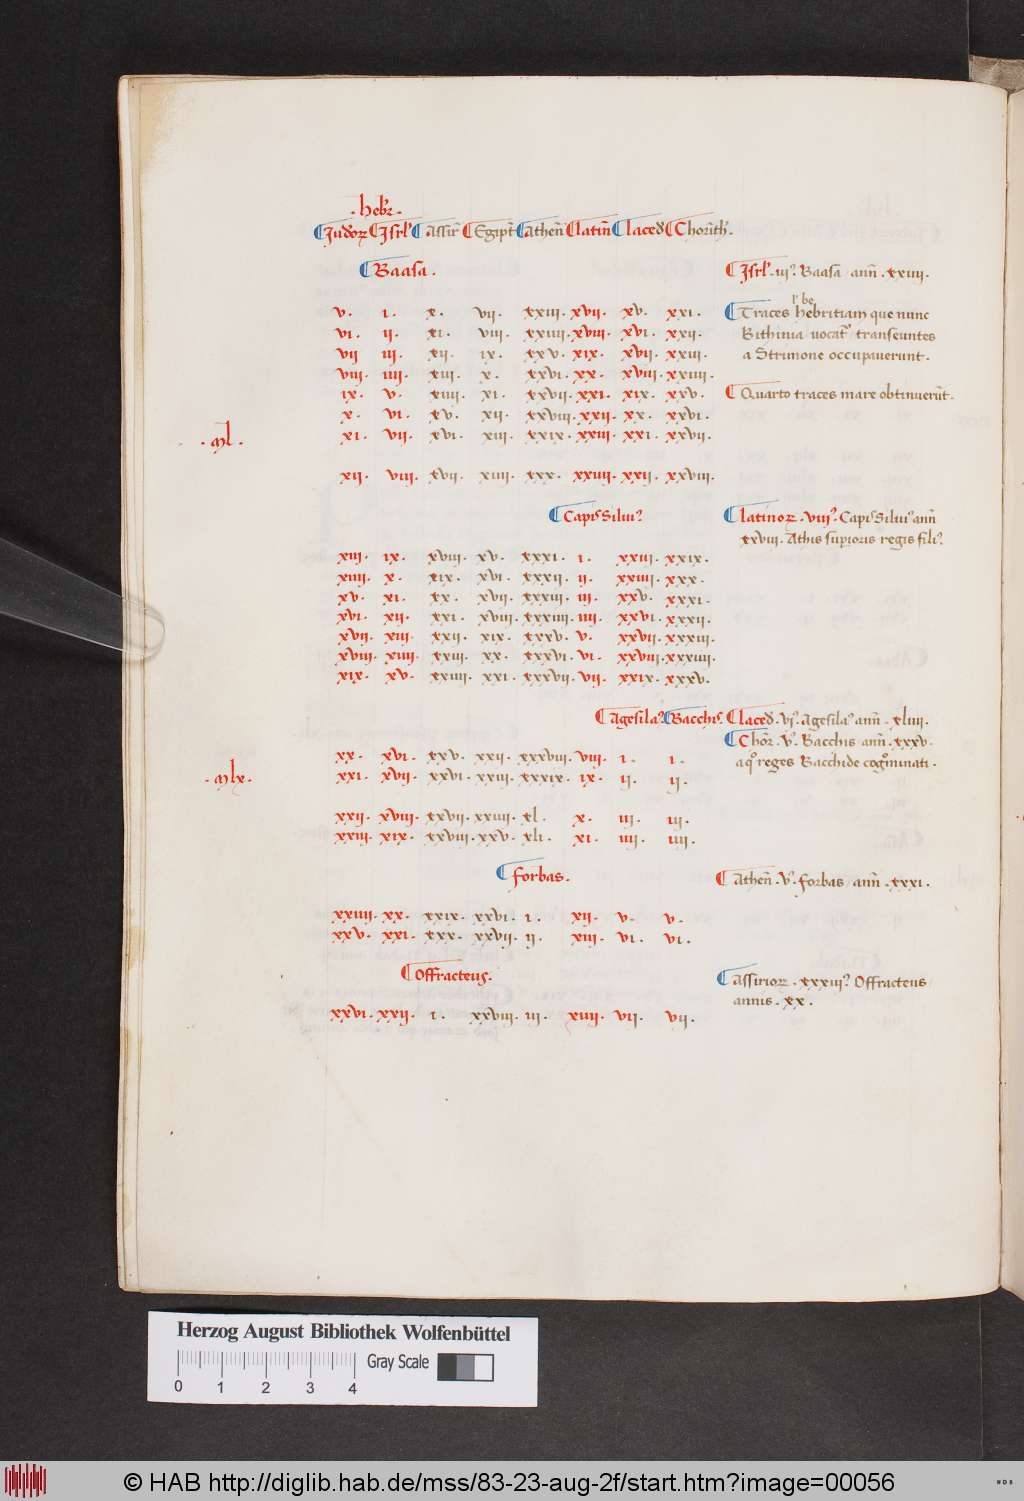 . hebr̄ .
Judoꝝ Jsrl' Assir̄ Egipt̄ Athen̄ latin̄ laced Chorinth'.
Baasa . Jsrl' . iij° . Baasa . ann̄ . xxiiij .
v . i . x . vij . xxiij . xvij . xv . xxi . Traces hebritiam que nunc
l' be
vi . ij . xi . viij . xxiiij . xviij . xvi . xxij . Bithinia vocat' transeuntes
vij iij . xij . ix . xxv . xix . xvij . xxiij . a Strimone occupaverunt .
viij . iiij . xiij . x . xxvi . xx . xviij . xxiiij .
ix . v . xiiij . xi . xxvij . xxi . xix . xxv . Quarto traces mare obtinuerūt .
x . vi . xv . xij . xxviij . xxij . xx . xxvi .
. ml . xi . vij . xvi . xiij . xxix . xxiij . xxi . xxvij .
xij . viij . xvij . xiiij . xxx . xxiiij . xxij . xxviij .
Capis Silui° latinoꝝ . viij° . Capis Silui° ann̄
xxviij . Athis supioris regis fili° .
xiij . ix . xviij . xv . xxxi . i . xxiij . xxix .
xiiij . x . xix . xvi . xxxij . ij . xxiiij . xxx .
xv . xi . xx . xvij . xxxiij . iij . xxv . xxxi .
xvi . xij . xxi . xviij . xxxiiij . iiij . xxvi . xxxij .
xvij . xiij . xxij . xix . xxxv . v . xxvij . xxxiij .
xviij . xiiij . xxiij . xx . xxxvi . vi . xxviij . xxxiiij .
xix . xv . xxiiij . xxi . xxxvij . vij . xxix . xxxv .
Agesila° . Bacchis . laced . vi° . Agesila° ann̄ . xliiij .
Chor̄ . v° . Bacchis ann̄ . xxxv .
xx . xvi . xxv . xxij . xxxviij . viij . i . i . a q° reges Bacchide cog°minati .
. mlx . xxi . xvij . xxvi . xxiij . xxxix . ix . ij . ij .
xxij . xviij . xxvij . xxiiij . xl . x . iij . iij .
xxiij . xix . xxviij . xxv . xli . xi . iiij . iiij .
forbas . Athen̄ . v° . forbas ann̄ . xxxi .
xxiiij . xx . xxix . xxvi . i . xij . v . v .
xxv . xxi . xxx . xxvij . ij . xiij . vi . vi .
Offracteus . Assirioꝝ . xxxiij° Offracteus
annis . xx .
xxvi . xxij . i . xxviij . iij . xiiij . vij . vij .
Herzog August Bibliothek Wolfenbüttel
Gray Scale
0 1 2 3 4
© HAB http://diglib.hab.de/mss/83-23-aug-2f/start.htm?image=00056